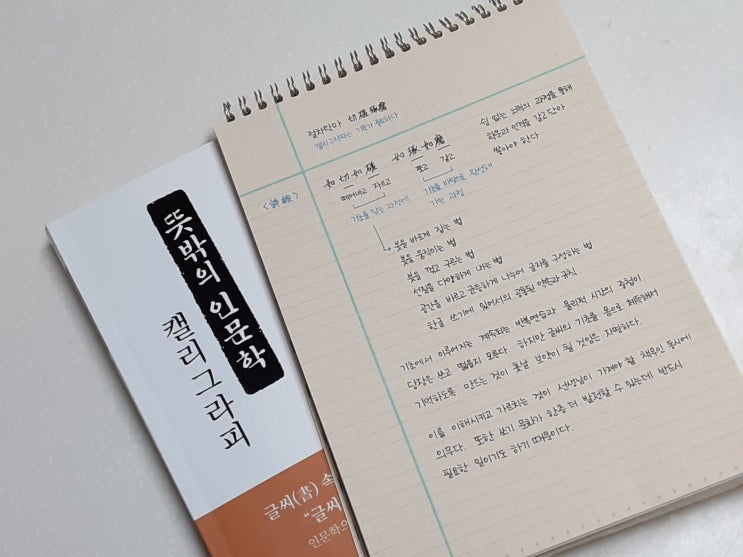 절차탁마 切磋琢磨
캘리그라피는 기초가 필요하다
쉼 없는 노력의 과정을 통해
학문과 인격을 갈고 닦아
쌓아야 한다
<詩經>
如切如磋 如琢如磨
떼어내고 자르고 쪼고 갈고
기초를 닦는 과정에 기초를 바탕으로 완성해
가는 과정
붓을 바르게 잡는 법
붓을 움직이는 법
붓을 꺾고 구르는 법
선질을 다양하게 내는 법
공간을 바르고 균등하게 나누어 글자를 구성하는 법
한글 쓰기에 있어서의 공통된 약속과 규칙
기초에서 이루어지는 계속되는 반복연습과 물리적 시간의 중첩이
당장은 쓰고 떫을지 모른다. 하지만 글씨의 기초를 몸으로 체득해서
기억하도록 만드는 것이 훗날 보약이 될 것임은 자명하다.
이를 이해시키고 가르치는 것이 선생님이 가져야 할 책무인 동시에
의무다. 또한 쓰기 문화가 한층 더 발전할 수 있는데 반드시
필요한 일이기도 하기 때문이다.
뜻밖의 인문학
캘리그라피
글씨(書) 속
"글씨
인문학의